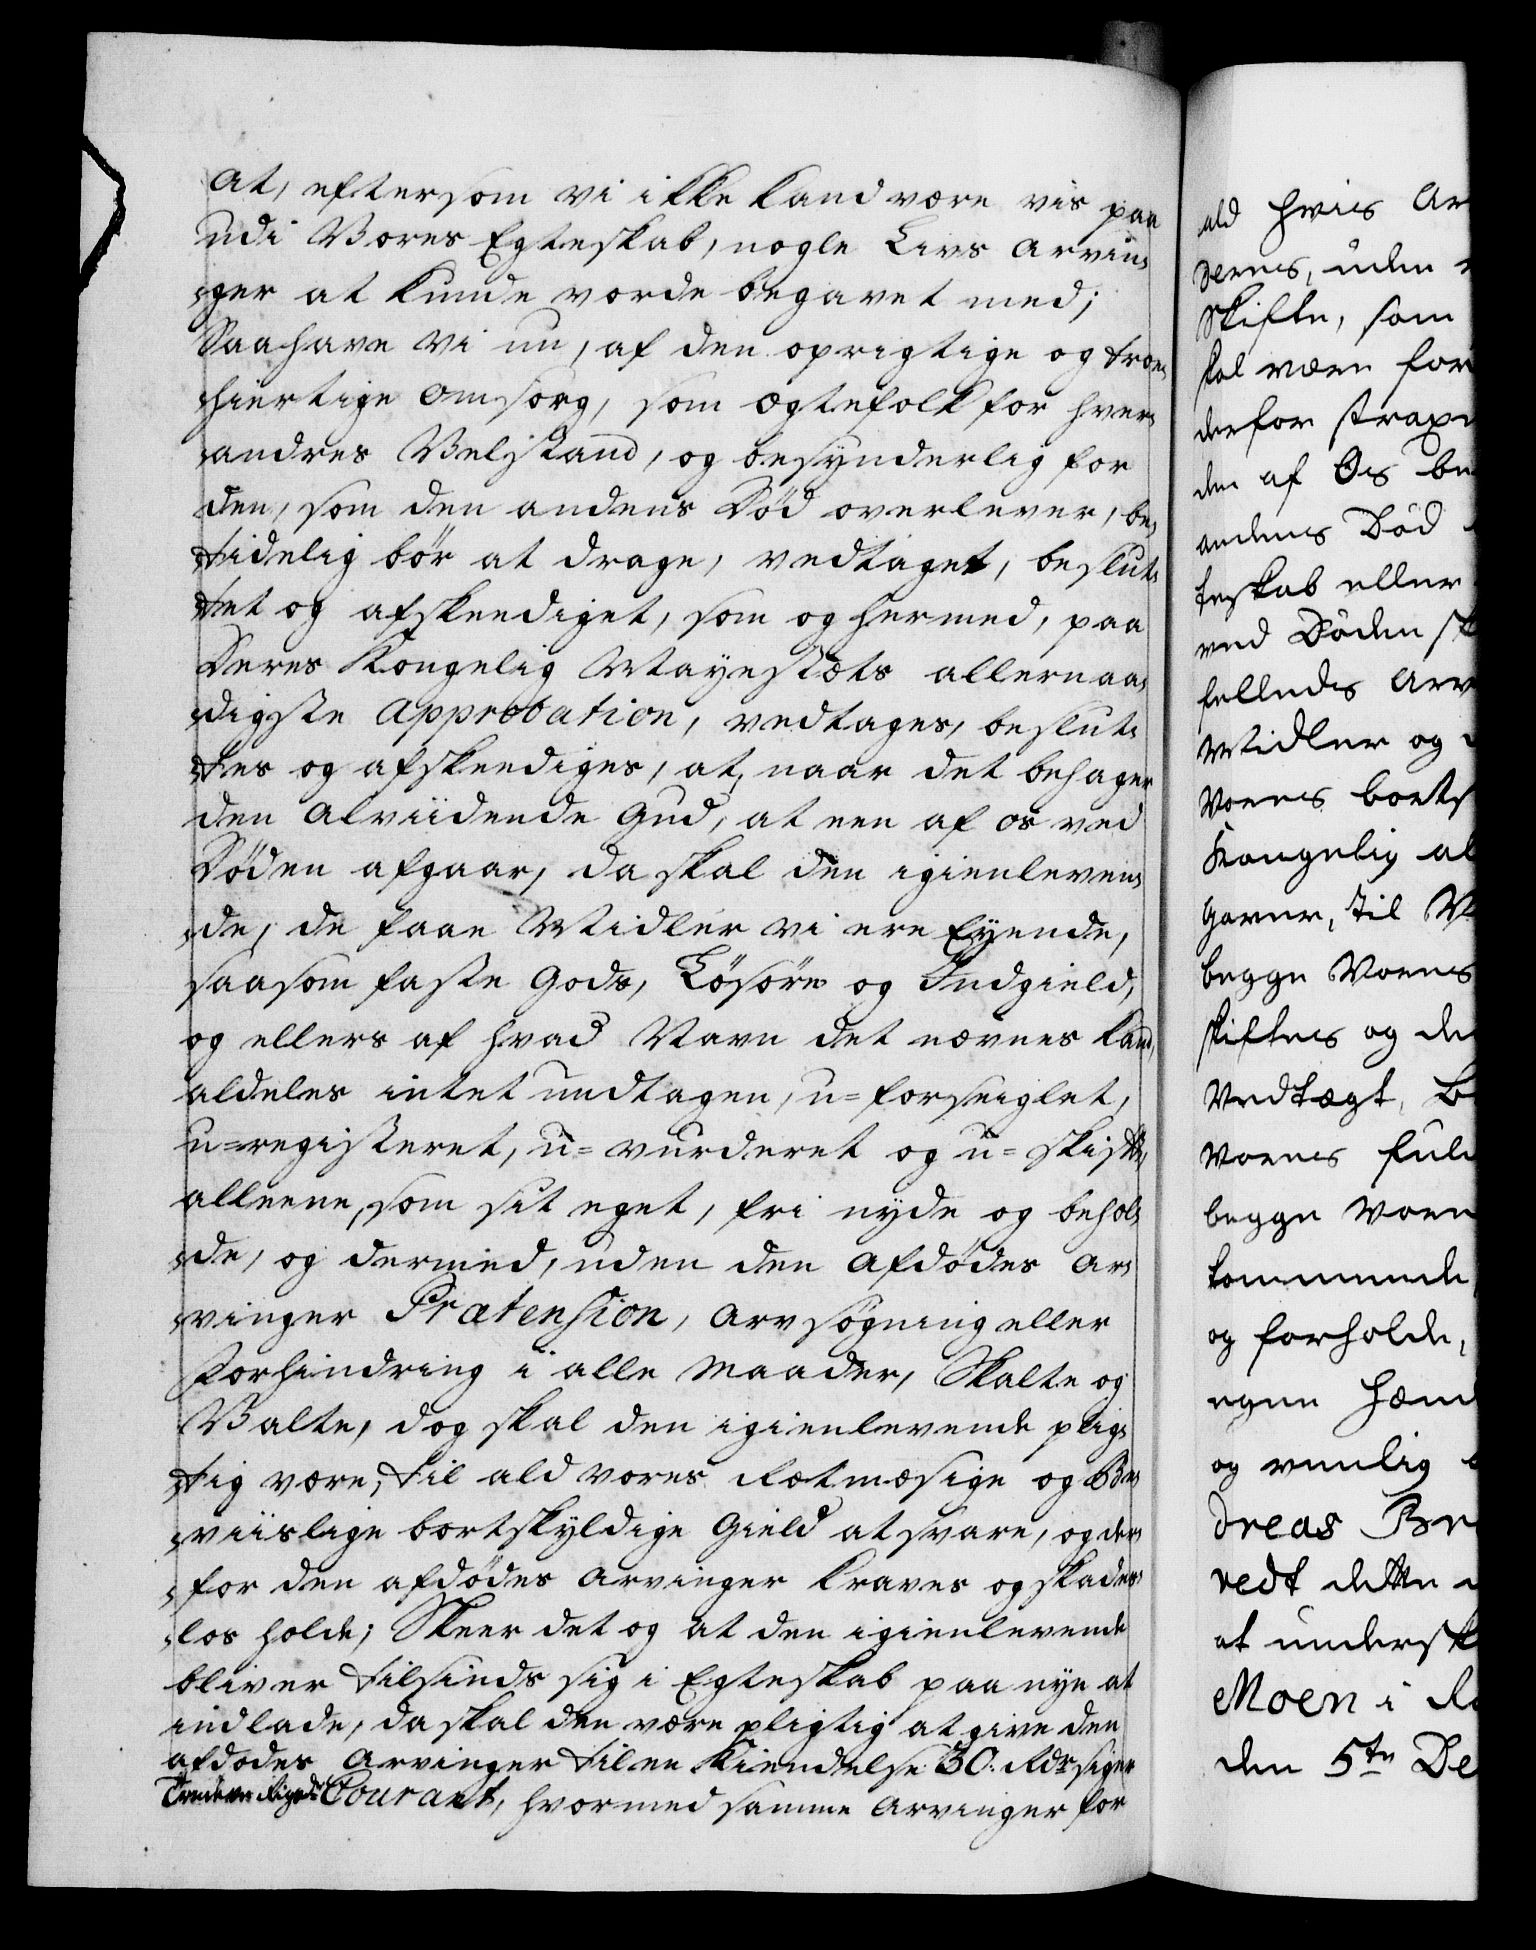 at, eftersom vi ikke kand være vis paa
udi Vores Egteskab, nogle Livs Arvin-
-ger at kunde vorde begavet med;
Saa have vi nu, af den oprigtige og troe-
-hiertige Omsorg, som Ægtefolk for hver-
-andres Velstand, og besynderlig for
den, som den andens Død overlever, be-
-tidelig bør at drage, vedtaget, beslut-
-tet og afskeediget, som og hermed, paa
Deres Kongelig Mayestæts allernaa-
-digste Approbation, vedtages, beslut-
-tes og afskeediges, at, naar det behager
den Alviidende Gud, at een af os ved
Døden afgaar, da skal den igienleven-
-de, de faae Midler vi ere Eyende,
saasom faste Gods, Løsøre og Indgield,
og ellers af hvad Navn det nævnes kand,
aldeles intet undtagen, u=forseiglet,
u=registeret, u=vurderet og u=skift,
alleene, som sit eget, fri nyde og behol-
-de, og dermed, uden den Afdødes Ar-
-vinger Prætension, Arvsøgning eller
Forhindring i alle Maader, Skalte og
Valte, dog skal den igienlevende plig-
-tig være, til ald vores Retmæsige og Be-
-viislige bortskyldige Gield at svare, og der-
-for den afdødes Arvinger kraves og skades-
-løs holde; Skeer det og at den igienlevende
bliver tilsinds sig i Egteskab paa nye at
indlade, da skal den være pligtig at give den
afdødes Arvinger til en Kiendelse 30. Rdr siger
Tredeve Rigsdr Courant, hvormed samme Arvinger for
ald hvis Ar
deres, uden
Skifte, som
skal være for
derfor strax
den af Os be
andens Død
teskab eller
ved Døden sk
felleds Arv
Midler og
Vores borts
Kongelig al
Gaver, til
begge Vores
skiftes og de
Vedtægt, B
Vores fuld
begge Vore
kommende
og forholde,
egne Hænd
og venlig
dreas Br
redt dette
at undersk
Moen i
den 5te De